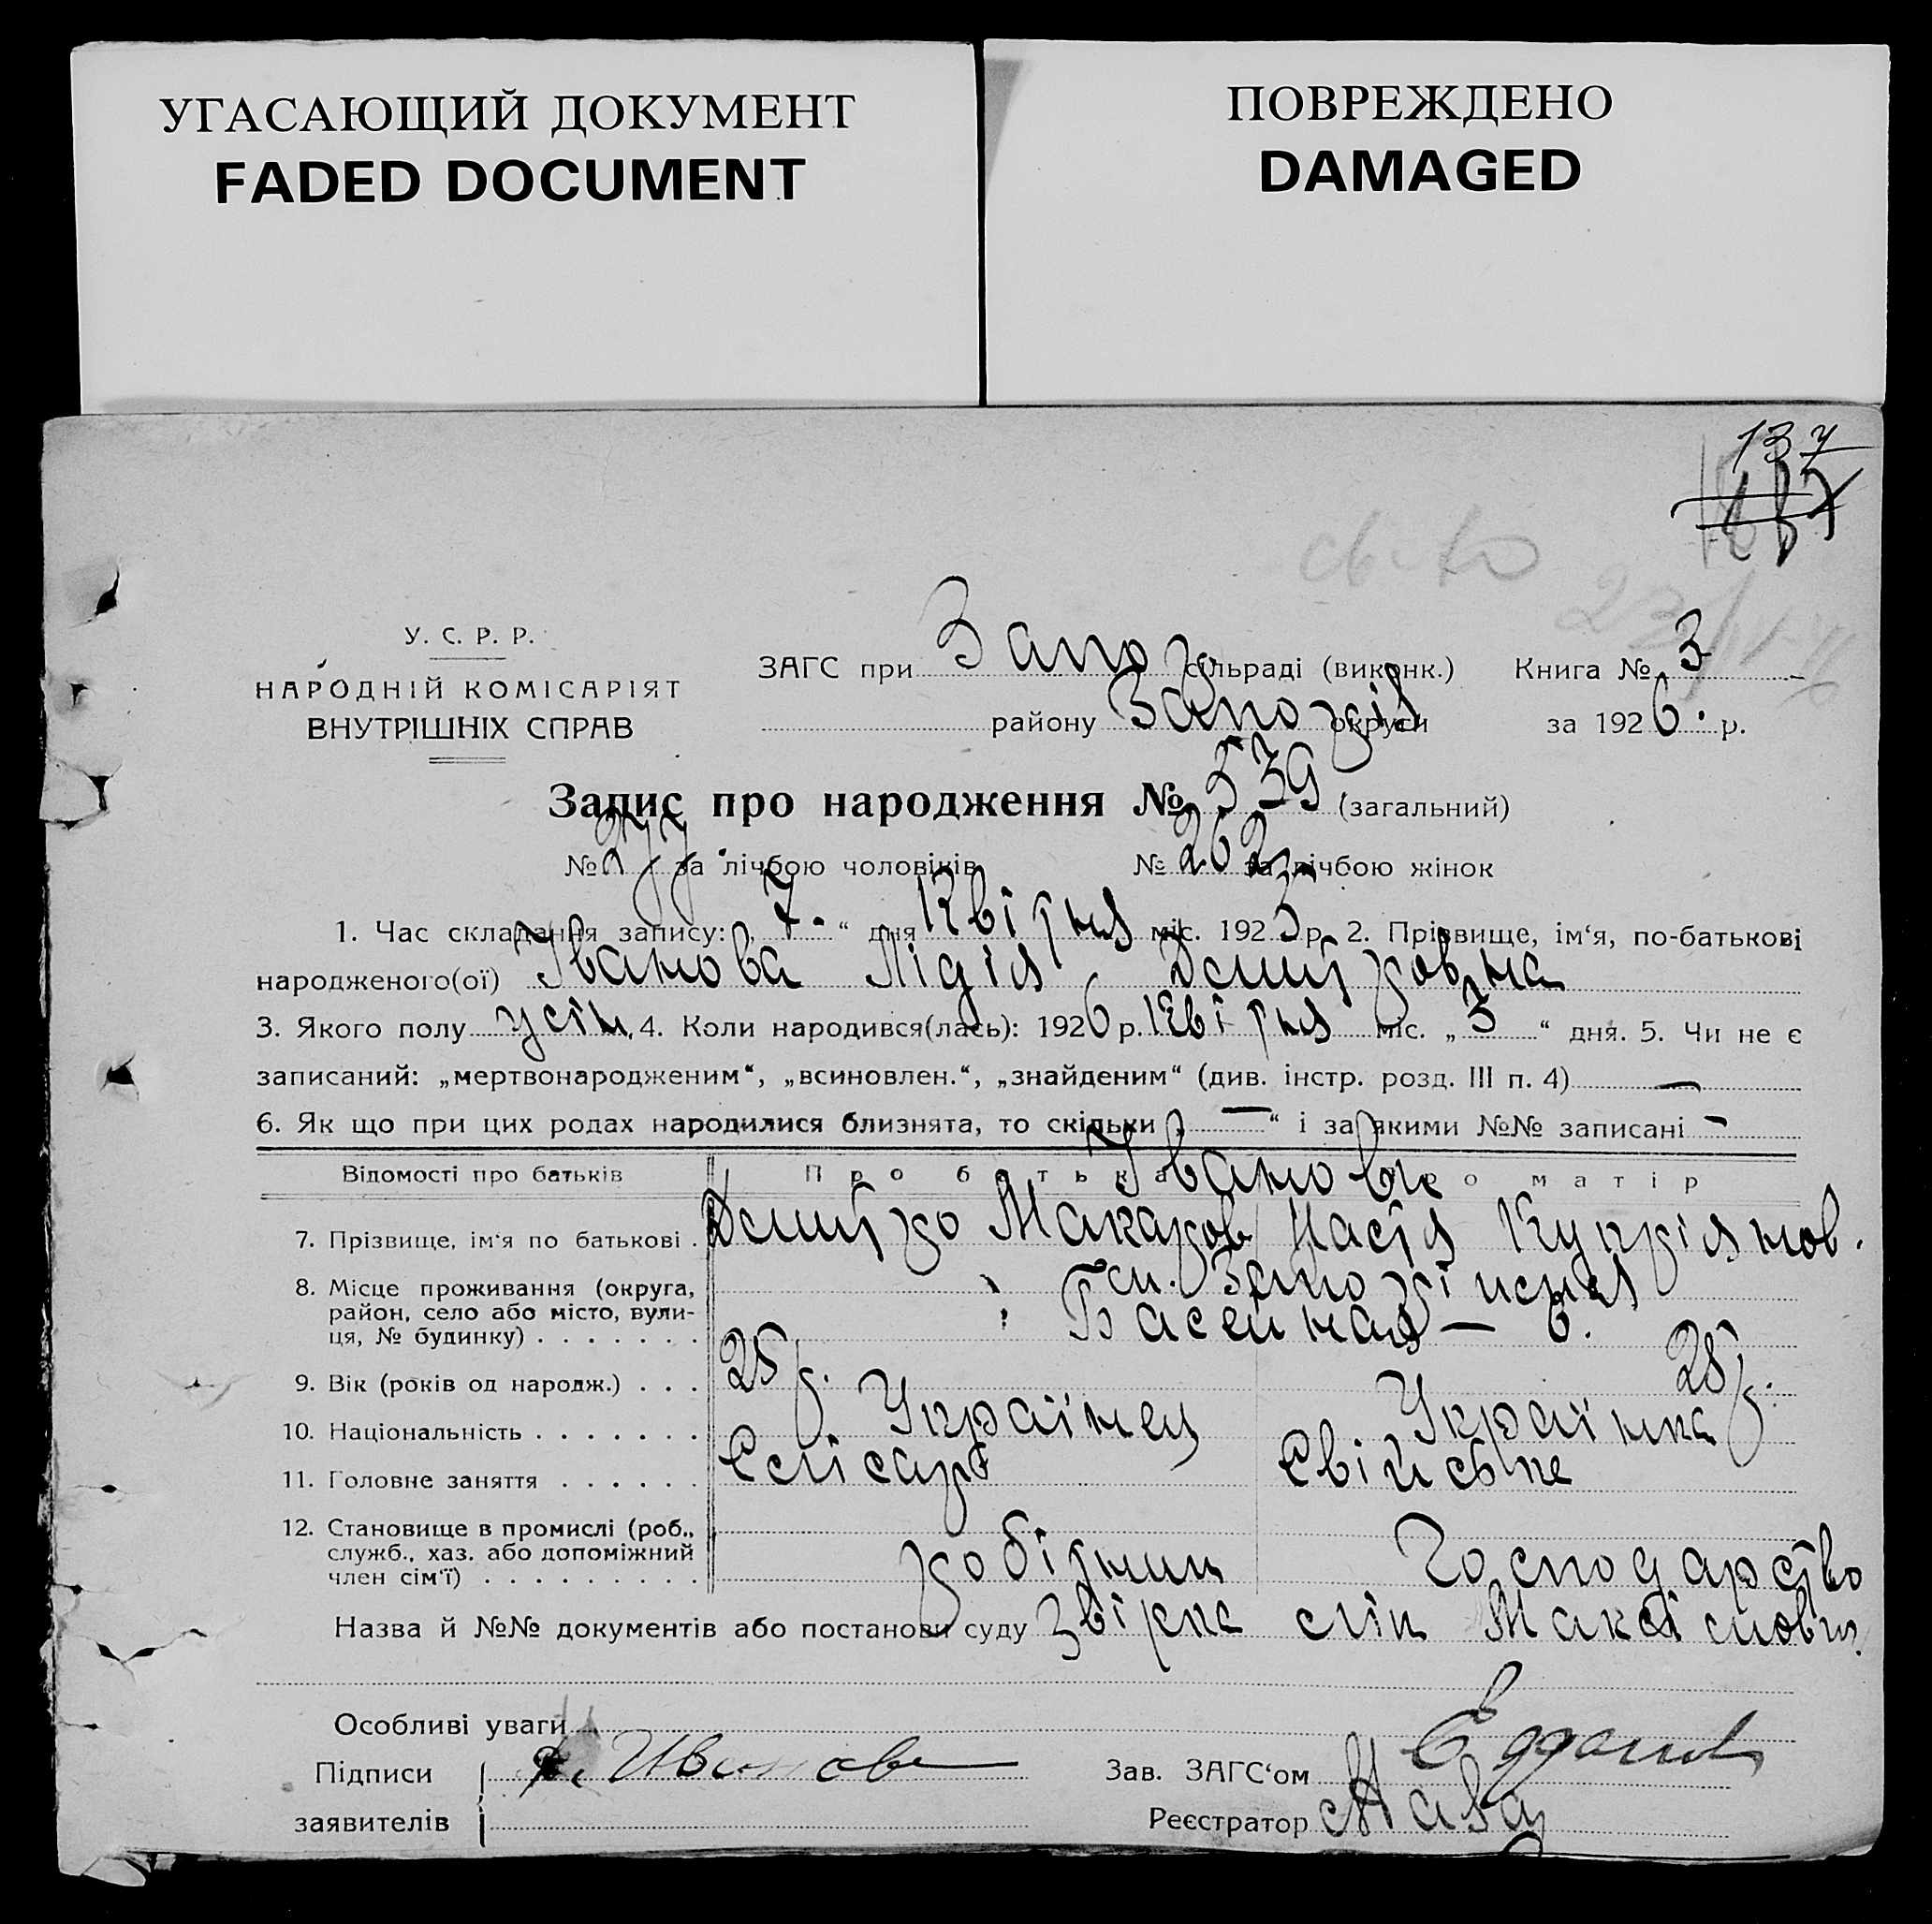 УГАСАЮЩИЙ ДОКУМЕНТ
FADED DOCUMENT
ПОВРЕЖДЕНО
DAMAGED
137
У. С. Р. Р.
НАРОДНІЙ КОМІСАРІЯТ
ВНУТРІШНІХ СПРАВ
ЗАГС при Запо сільраді (виконк.) Книга № 3
району Запо округи за 1926 р.
Запис про народження № 539 (загальний)
№ 277 за лічбою чоловіків № 262 за лічбою жінок
1. Час складання запису: „ 7 “ дня Квітня міс. 192 р. 2. Прізвище, ім‘я, по-батькові
народженого(ої) Іванова Лідія Дмитровна
3. Якого полу 4. Коли народився(лась): 1926 р. Квітня міс. „ 3 “ дня. 5. Чи не є
записаний: „мертвонародженим“, „всиновлен.“, „знайденим“ (див. інстр. розд. III п. 4) —
6. Як що при цих родах народилися близнята, то скільки „ — “ і за якими №№ записані —
Відомості про батьків Про батька Про матір
Іванови
7. Прізвище, ім‘я по батькові . Дмитро Макаров Настя Купріянов.
8. Місце проживання (округа,
район, село або місто, вули-
ця, № будинку) . . . . . . . Басейная — 6.
9. Вік (років од народж.) . . . 25 р. 28 р.
10. Національність . . . . . . . Українец Українка
11. Головне заняття . . . . . . Слісарь Свійське
12. Становище в промислі (роб.,
служб., хаз. або допоміжний
член сім‘ї) . . . . . . . . . робітник Господарство
Назва й №№ документів або постанови суду Звірка
Особливі уваги
Підписи Иванов Зав. ЗАГС‘ом
заявителів Реєстратор